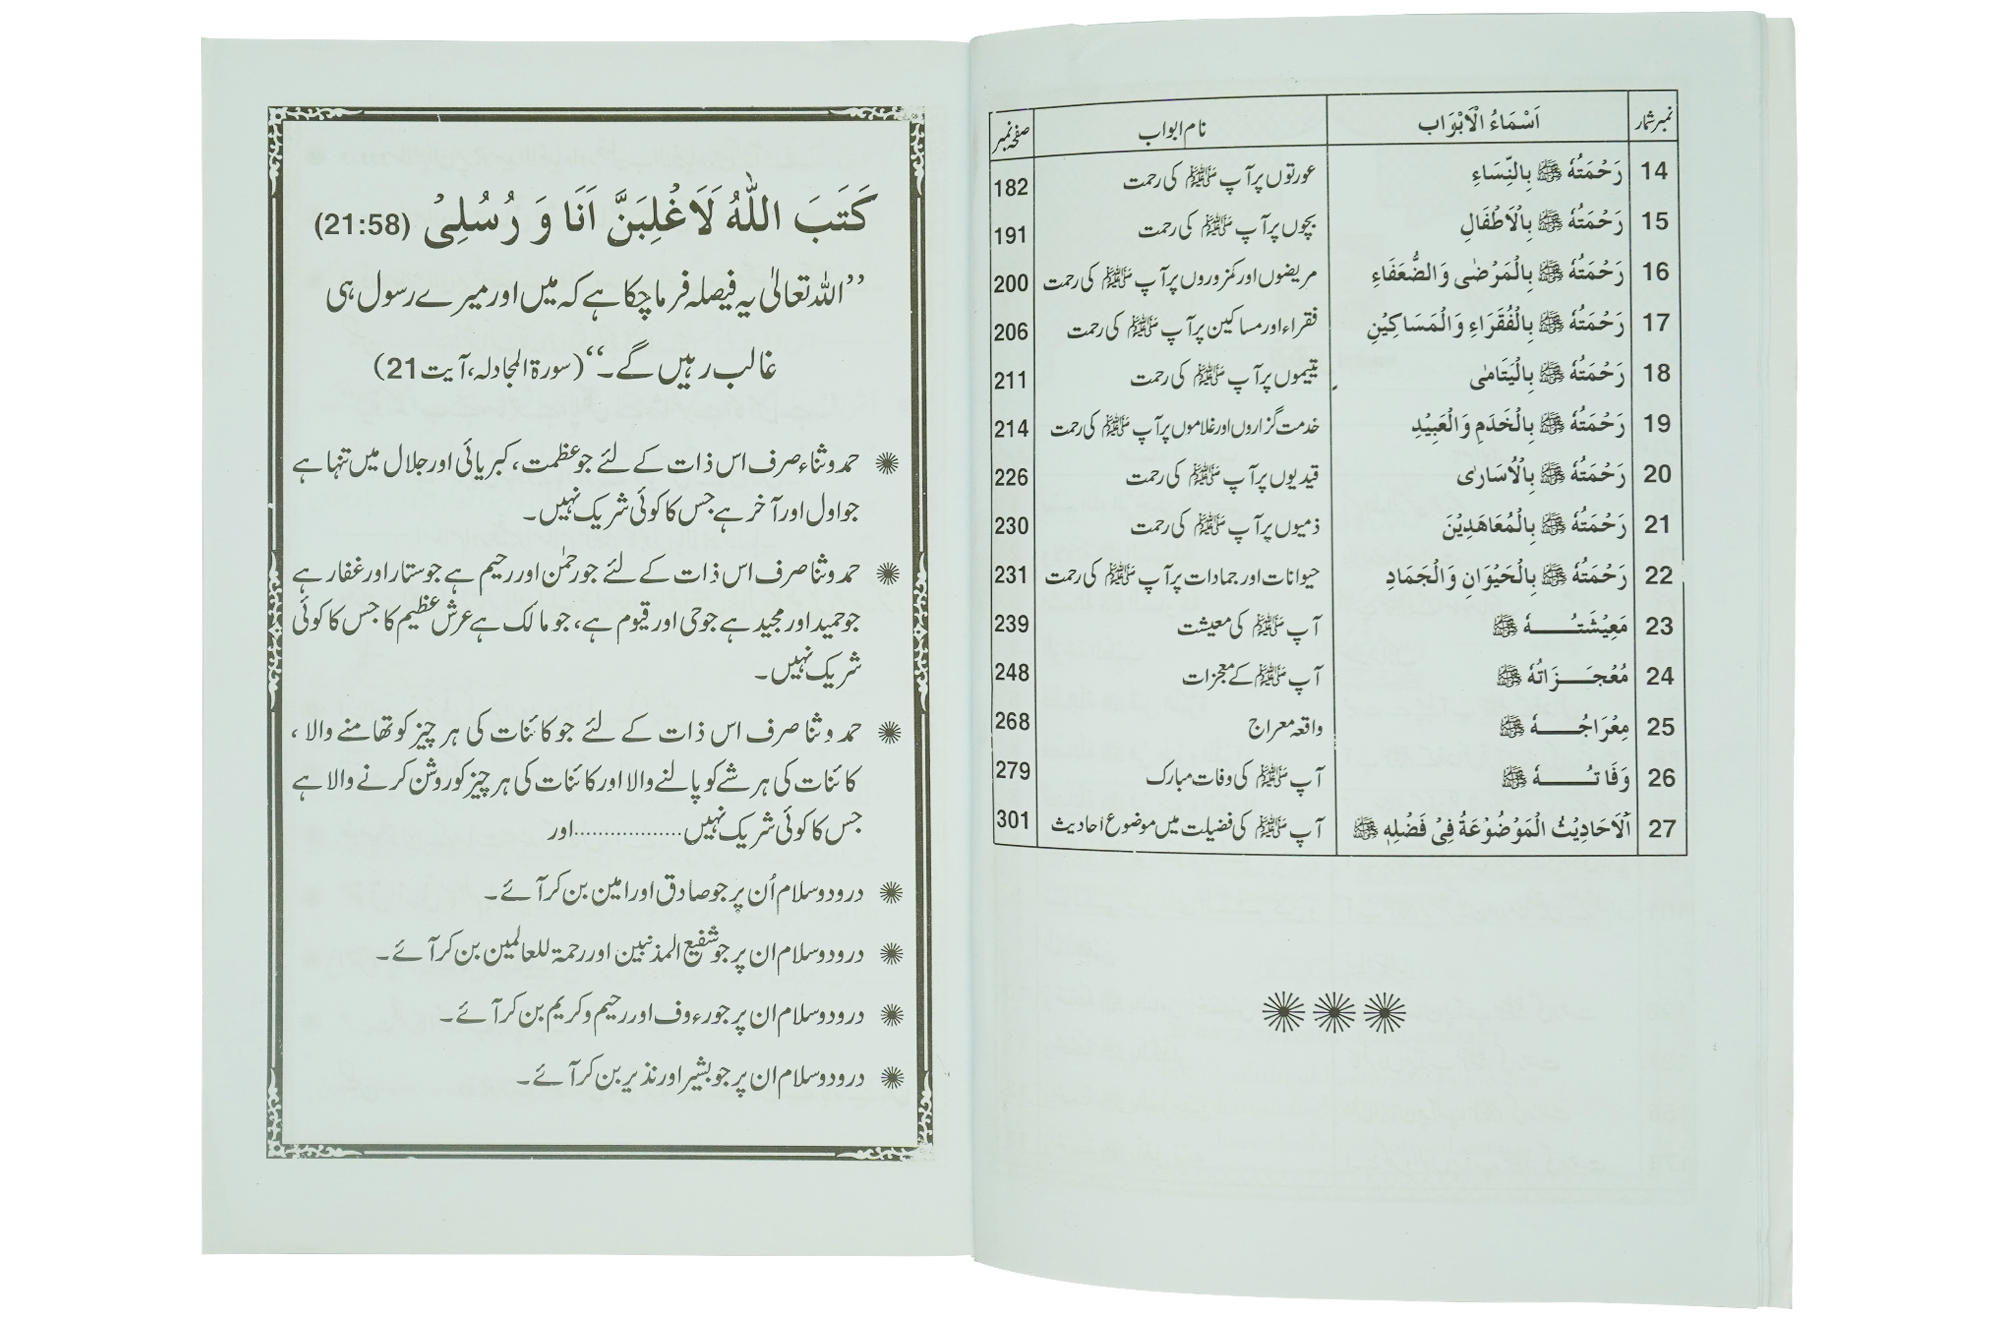 نمبر شمار | اَسْمَاءُ الْاَبْوَاب | نام ابواب | صفحہ نمبر
14 | رَحْمَتُهٗ ﷺ بِالنِّسَاءِ | عورتوں پر آپ ﷺ کی رحمت | 182
15 | رَحْمَتُهٗ ﷺ بِالْاَطْفَالِ | بچوں پر آپ ﷺ کی رحمت | 191
16 | رَحْمَتُهٗ ﷺ بِالْمَرْضٰى وَالضُّعَفَاءِ | مریضوں اور کمزوروں پر آپ ﷺ کی رحمت | 200
17 | رَحْمَتُهٗ ﷺ بِالْفُقَرَاءِ وَالْمَسَاكِيْنِ | فقراء اور مساکین پر آپ ﷺ کی رحمت | 206
18 | رَحْمَتُهٗ ﷺ بِالْيَتَامٰى | یتیموں پر آپ ﷺ کی رحمت | 211
19 | رَحْمَتُهٗ ﷺ بِالْخَدَمِ وَالْعَبِيْدِ | خدمت گزاروں اور غلاموں پر آپ ﷺ کی رحمت | 214
20 | رَحْمَتُهٗ ﷺ بِالْاُسَارٰى | قیدیوں پر آپ ﷺ کی رحمت | 226
21 | رَحْمَتُهٗ ﷺ بِالْمُعَاهَدِيْنَ | ذمیوں پر آپ ﷺ کی رحمت | 230
22 | رَحْمَتُهٗ ﷺ بِالْحَيْوَانِ وَالْجَمَادِ | حیوانات اور جمادات پر آپ ﷺ کی رحمت | 231
23 | مَعِيْشَتُـــهٗ ﷺ | آپ ﷺ کی معیشت | 239
24 | مُعْجَـــزَاتُهٗ ﷺ | آپ ﷺ کے معجزات | 248
25 | مِعْرَاجُـــهٗ ﷺ | واقعہ معراج | 268
26 | وَفَاتُـــهٗ ﷺ | آپ ﷺ کی وفات مبارک | 279
27 | اَلْاَحَادِيْثُ الْمَوْضُوْعَةُ فِيْ فَضْلِهٖ ﷺ | آپ ﷺ کی فضیلت میں موضوع احادیث | 301
كَتَبَ اللّٰهُ لَاَغْلِبَنَّ اَنَا وَ رُسُلِيْ (21:58)
’’اللہ تعالیٰ یہ فیصلہ فرما چکا ہے کہ میں اور میرے رسول ہی
غالب رہیں گے۔‘‘ (سورۃ المجادلہ، آیت 21)
حمد و ثناء صرف اس ذات کے لئے جو عظمت، کبریائی اور جلال میں تنہا ہے
جو اول اور آخر ہے جس کا کوئی شریک نہیں۔
حمد و ثنا صرف اس ذات کے لئے جو رحمٰن اور رحیم ہے جو ستار اور غفار ہے
جو حمید اور مجید ہے جو حی اور قیوم ہے، جو مالک ہے عرش عظیم کا جس کا کوئی
شریک نہیں۔
حمد و ثنا صرف اس ذات کے لئے جو کائنات کی ہر چیز کو تھامنے والا،
کائنات کی ہر شے کو پالنے والا اور کائنات کی ہر چیز کو روشن کرنے والا ہے
جس کا کوئی شریک نہیں.................اور
درود و سلام اُن پر جو صادق اور امین بن کر آئے۔
درود و سلام ان پر جو شفیع المذنبین اور رحمۃ للعالمین بن کر آئے۔
درود و سلام ان پر جو رءوف اور رحیم و کریم بن کر آئے۔
درود و سلام ان پر جو بشیر اور نذیر بن کر آئے۔